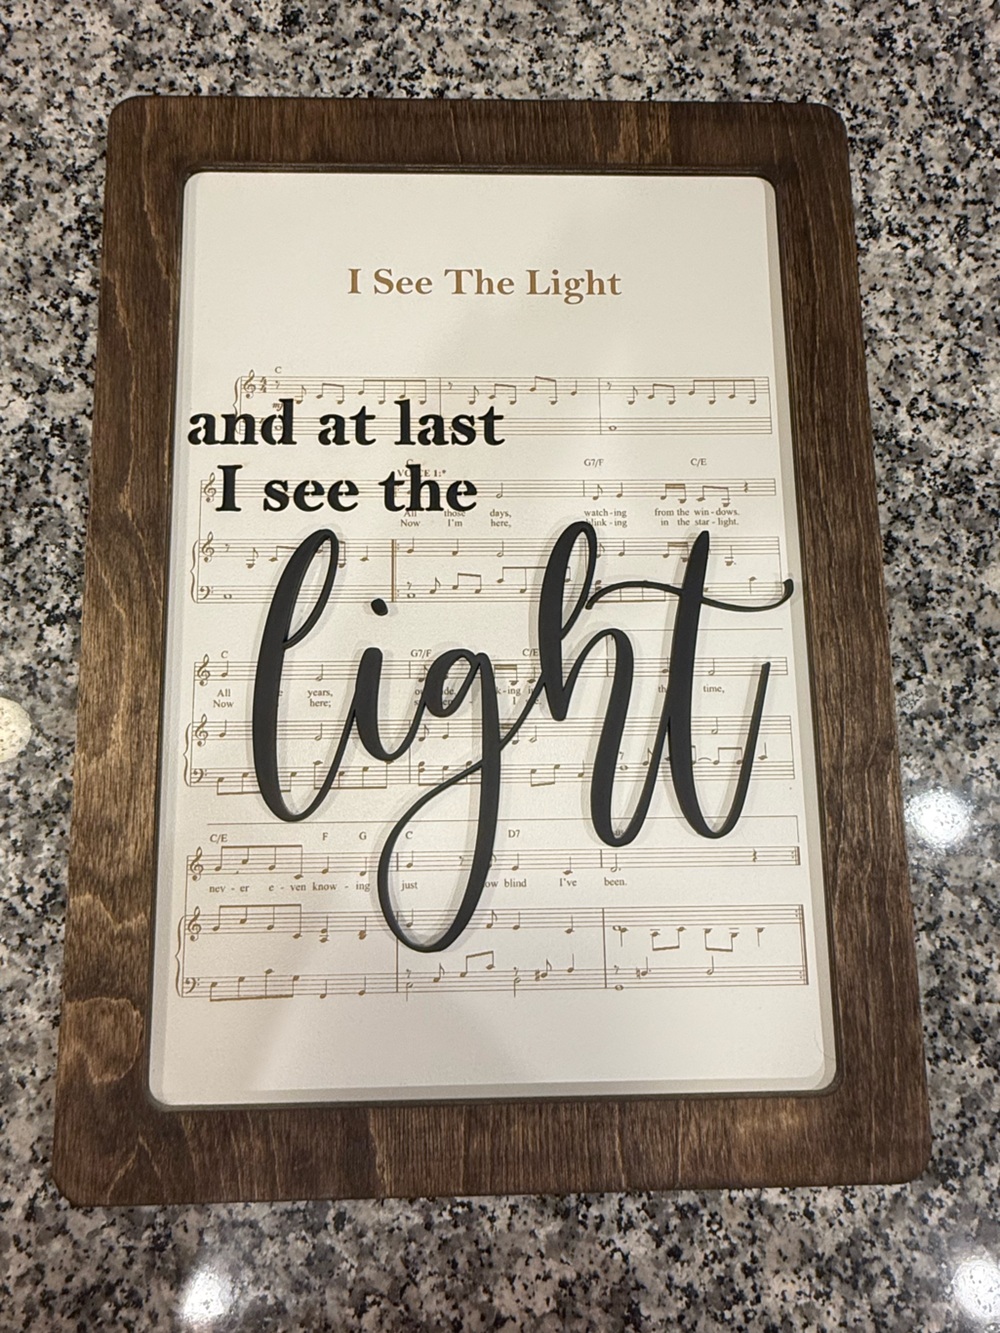 I See The Light
C
and at last
C G7/F C/E
I see the
All those days, watch - ing from the win - dows.
Now I'm here, blink - ing in the star - light.
light
C G7/F C/E
All years, time,
Now here; I
C/E F G C D7
nev - er e - ven know - ing just how blind I've been.